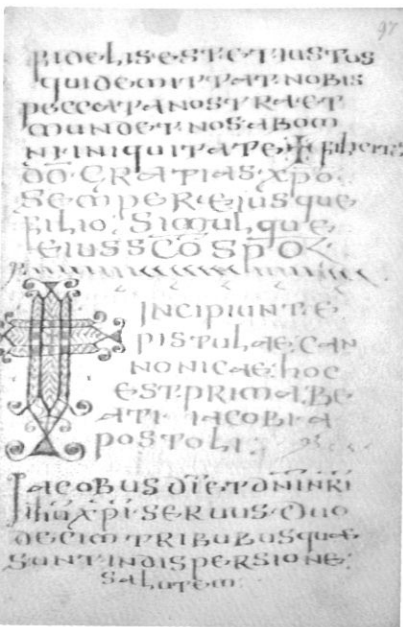 97
FIDELISESTETIUSTUS
QUIDEMITTATNOBIS
PECCATANOSTRAET
MUNDETNOSABOM
NIINIQUITATE
DŌ·GRATIAS·XPO·
SEMPEREIUSQUE
FILIO SIMULQUE
EIUSSCŌSPŌ
INCIPIUNT·E
PISTULAE·CAN
NONICAE·HOC
EST·PRIMA·BE
ATI IACOBI A
POSTOLI·
IACOBUS D̄I ET D̄N̄I N̄R̄I
IHU X̄P̄I SERUUS· DUO
DECIM TRIBUBUS QUAE
SUNT IN DISPERSIONE·
SALUTEM·